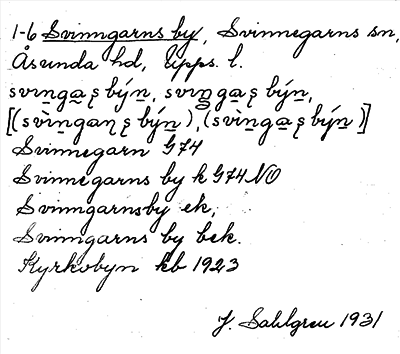 1-6 Svinngarns by, Svinnegarns sn,
Åsunda hd, Upps. l.
svinga̲ʂ býn̲, sving̲a̲ʂ býn̲,
[(svìn̲gaɳʂ býn̲), (svìn̲ga̲ʂ býn̲)]
Svinnegarn G74
Svinnegarns by k G74 NO
Svinngarnsby ek.
Svinngarns by bek.
Kyrkobyn kb 1923
J. Sahlgren 1931